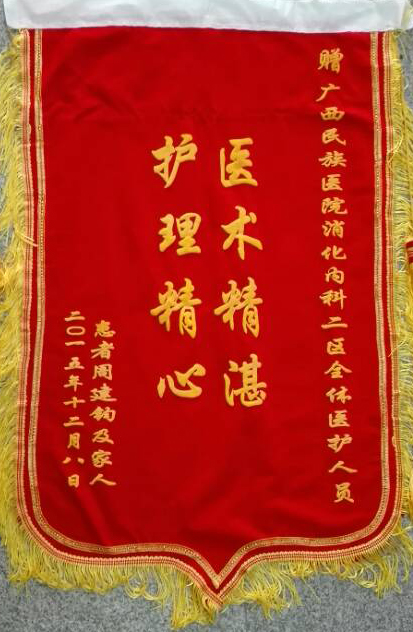 赠广西民族医院消化内科二区全体医护人员
医术精湛
护理精心
患者周建钧及家人
二〇一五年十二月八日